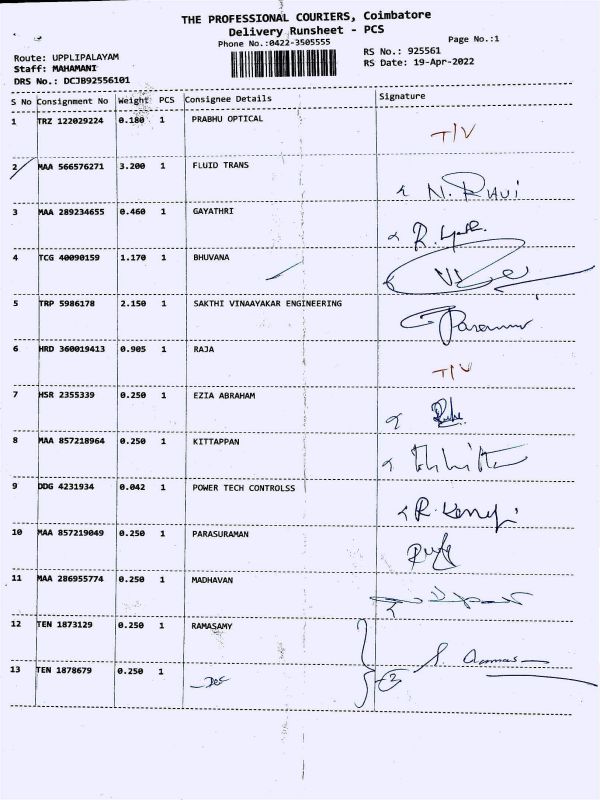 THE PROFESSIONAL COURIERS, Coimbatore
Delivery Runsheet - PCS
Phone No.:0422-3505555
Page No.:1
Route: UPPLIPALAYAM
RS No.: 925561
Staff: MAHAMANI
RS Date: 19-Apr-2022
DRS No.: DCJB92556101
S No Consignment No Weight PCS Consignee Details Signature
1 TRZ 122029224 0.180 1 PRABHU OPTICAL T/V
2 MAA 566576271 3.200 1 FLUID TRANS N. Ravi
3 MAA 289234655 0.460 1 GAYATHRI R.
4 TCG 40090159 1.170 1 BHUVANA
5 TRP 5986178 2.150 1 SAKTHI VINAAYAKAR ENGINEERING
6 HRD 360019413 0.905 1 RAJA T/V
7 HSR 2355339 0.250 1 EZIA ABRAHAM
8 MAA 857218964 0.250 1 KITTAPPAN
9 DDG 4231934 0.042 1 POWER TECH CONTROLSS R.
10 MAA 857219049 0.250 1 PARASURAMAN
11 MAA 286955774 0.250 1 MADHAVAN
12 TEN 1873129 0.250 1 RAMASAMY
13 TEN 1878679 0.250 1 2